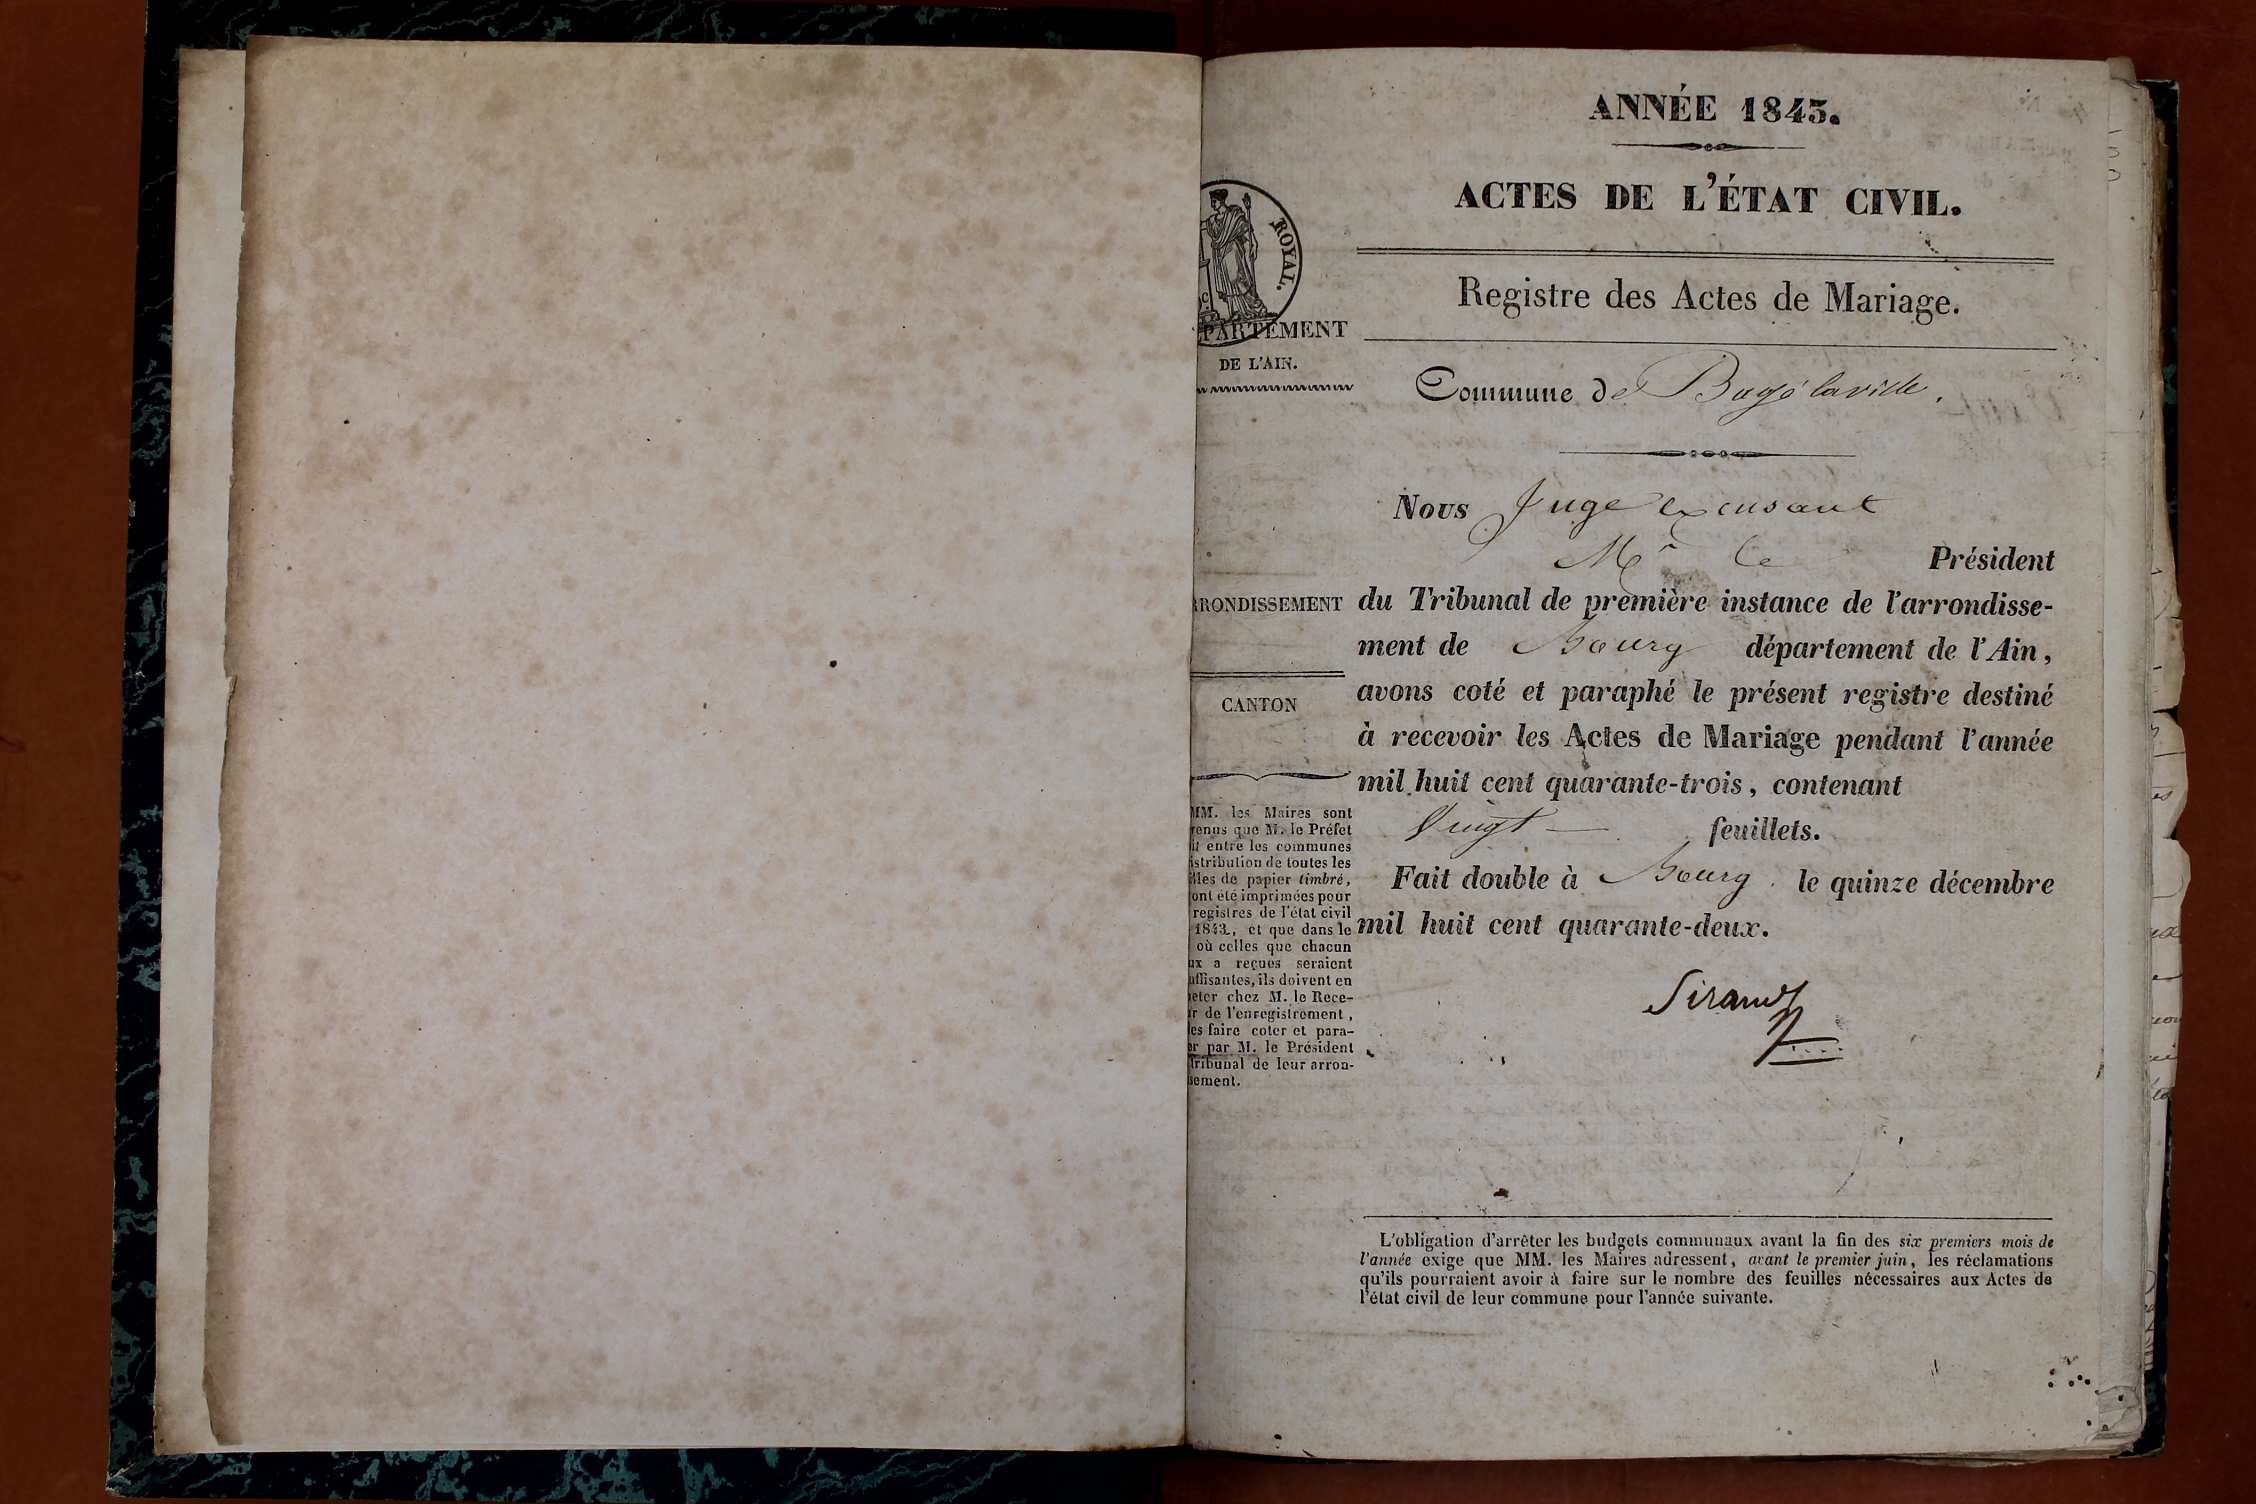 ANNÉE 1843.
ACTES DE L'ÉTAT CIVIL.
Registre des Actes de Mariage.
ROYAL.
PARTEMENT
DE L'AIN.
Commune de Bagé la ville.
Nous Juge
Mr le Président
RONDISSEMENT
du Tribunal de première instance de l'arrondisse-
ment de Bourg département de l'Ain,
CANTON
avons coté et paraphé le présent registre destiné
à recevoir les Actes de Mariage pendant l'année
mil huit cent quarante-trois, contenant
Vingt feuillets.
Fait double à Bourg le quinze décembre
mil huit cent quarante-deux.
Sirand
MM. les Maires sont
venus que M. le Préfet
it entre les communes
istribution de toutes les
lles de papier timbré,
ont été imprimées pour
registres de l'état civil
1843, et que dans le
où celles que chacun
ux a reçues seraient
uffisantes, ils doivent en
eter chez M. le Rece-
r de l'enregistrement,
es faire coter et para-
er par M. le Président
tribunal de leur arron-
sement.
L'obligation d'arrêter les budgets communaux avant la fin des six premiers mois de
l'année exige que MM. les Maires adressent, avant le premier juin, les réclamations
qu'ils pourraient avoir à faire sur le nombre des feuilles nécessaires aux Actes de
l'état civil de leur commune pour l'année suivante.